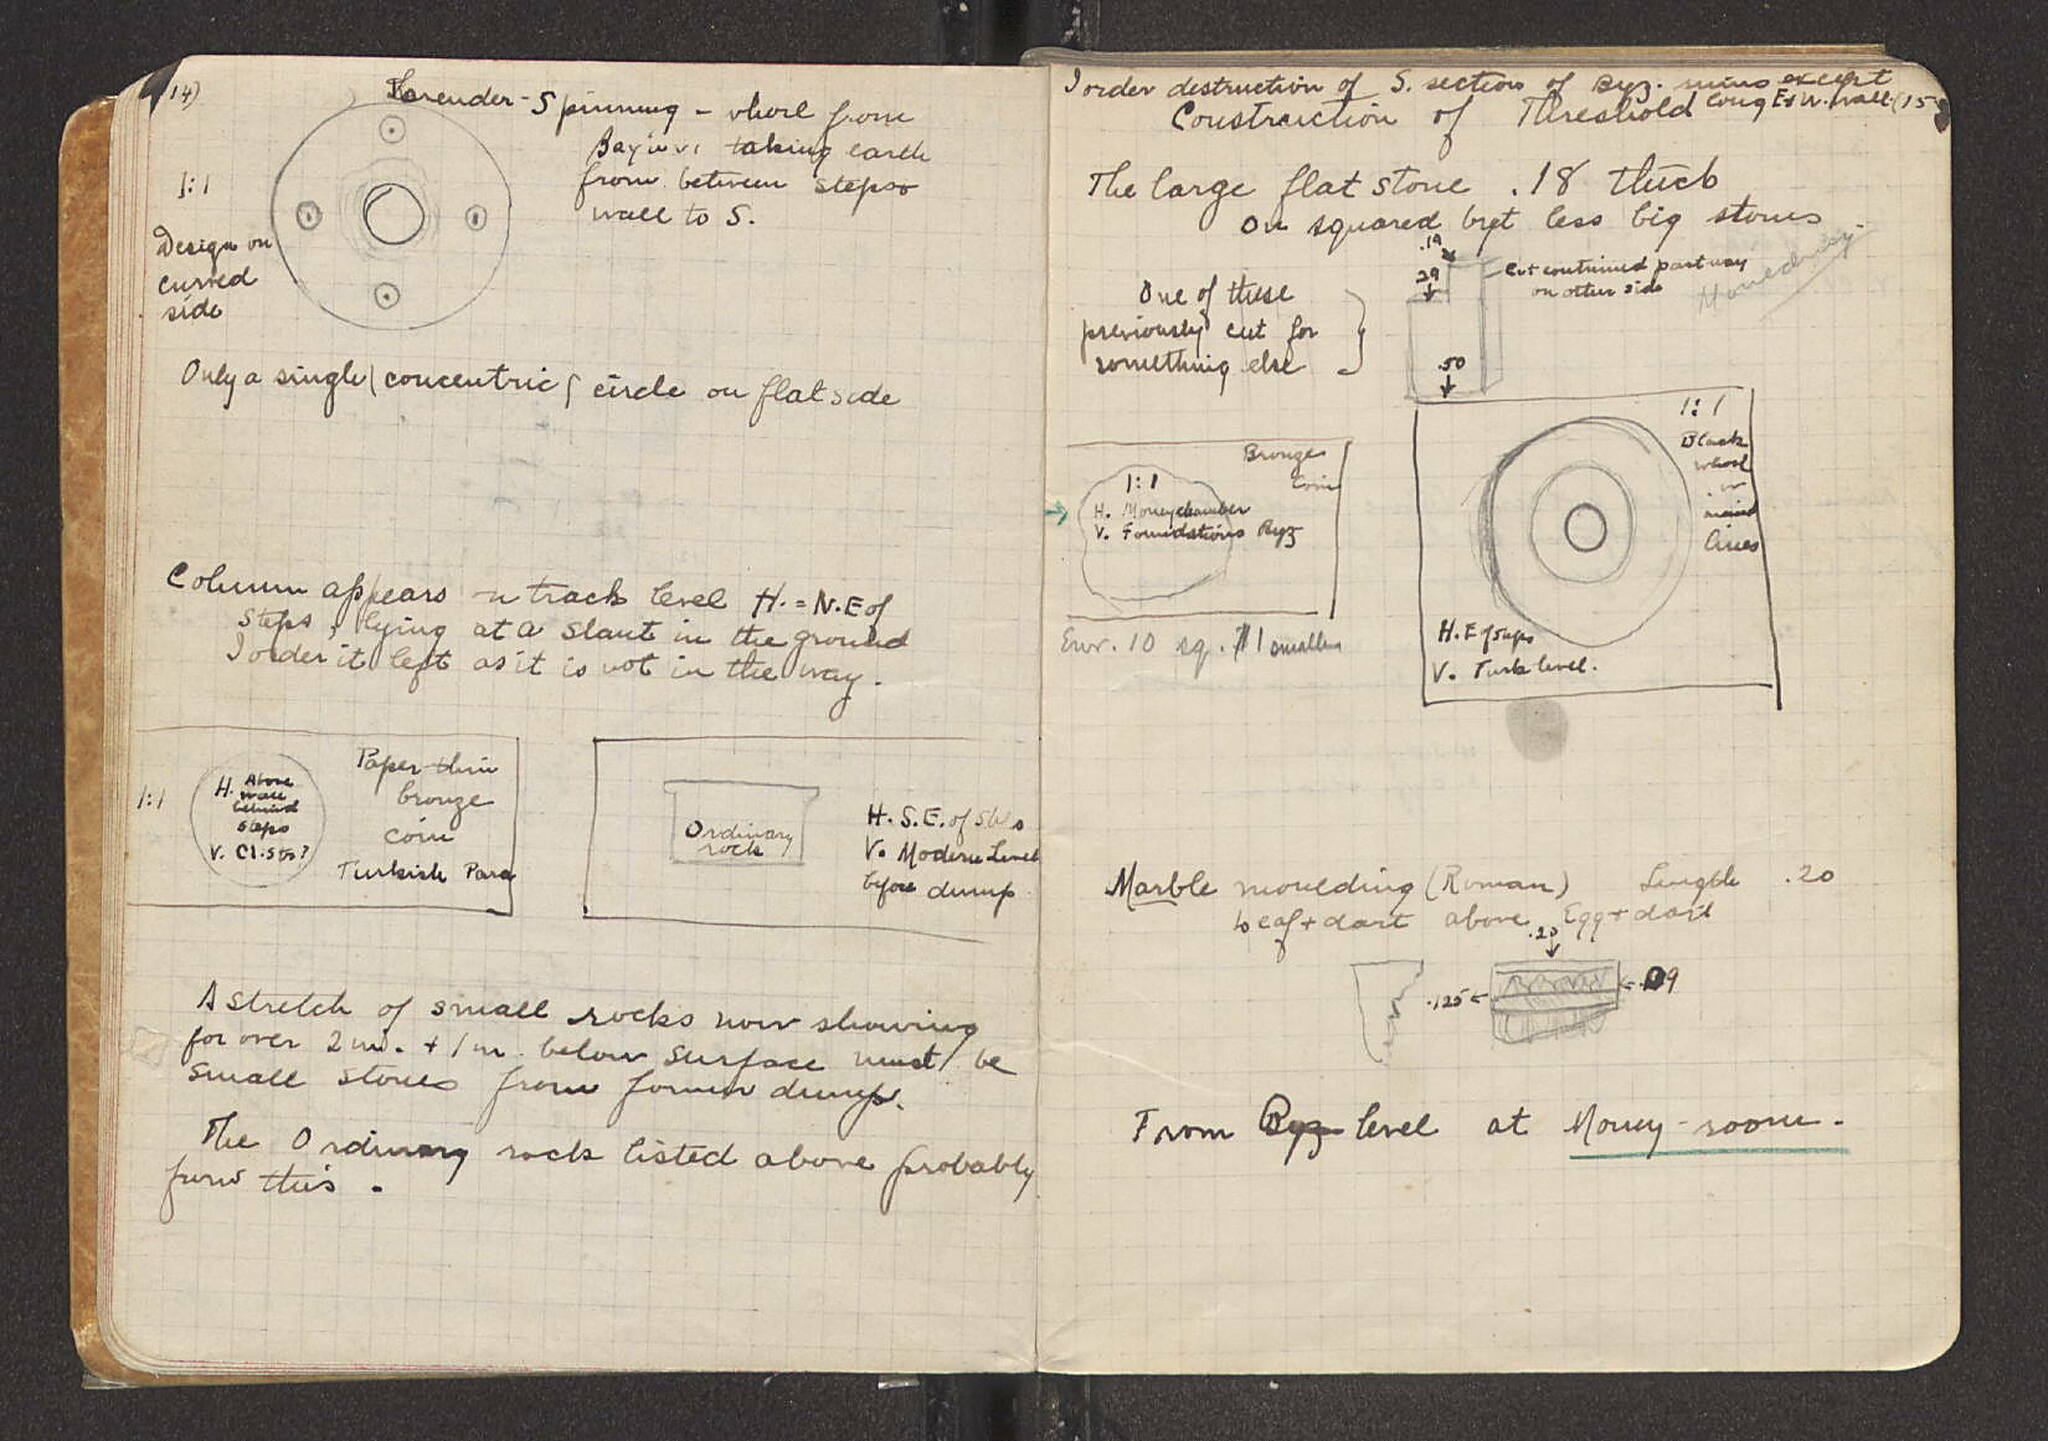 14)
Lavender - Spinning - whorl from
taking earth
from between steps &
wall to S.
1:1
Design on
curved
side
Only a single (concentric) circle on flat side
Column appears in track level H. = N.E of
steps, lying at a slant in the ground
I order it left as it is not in the way.
1:1
H. Above
wall
behind
steps
V. Cl. sts?
Paper-thin
bronze
coin
Turkish Para
Ordinary
rock
H. S.E. of
V. Modern Level
before dump
A stretch of small rocks now showing
for over 2 m. + 1 m. below surface must be
small stones from former dump.
The Ordinary rock listed above probably
from this.
I order destruction of S. section of Byz. ruins except
long E & W. wall (15
Construction of Threshold
The large flat stone .18 thick
on squared but less big stones
Monday
One of these
previously cut for
something else
.19
.29
.50
Cut continued part way
on other side
Bronze
Coin
1:1
H. Moneychamber
V. Foundations Byz
Env. 10 sq. 1 smaller
1:1
Black
whorl
lines
H. E of steps
V. Turk level.
Marble moulding (Roman) Length .20
Leaf + dart above Egg + dart
.20
.125
.09
From Byz level at Money-room.